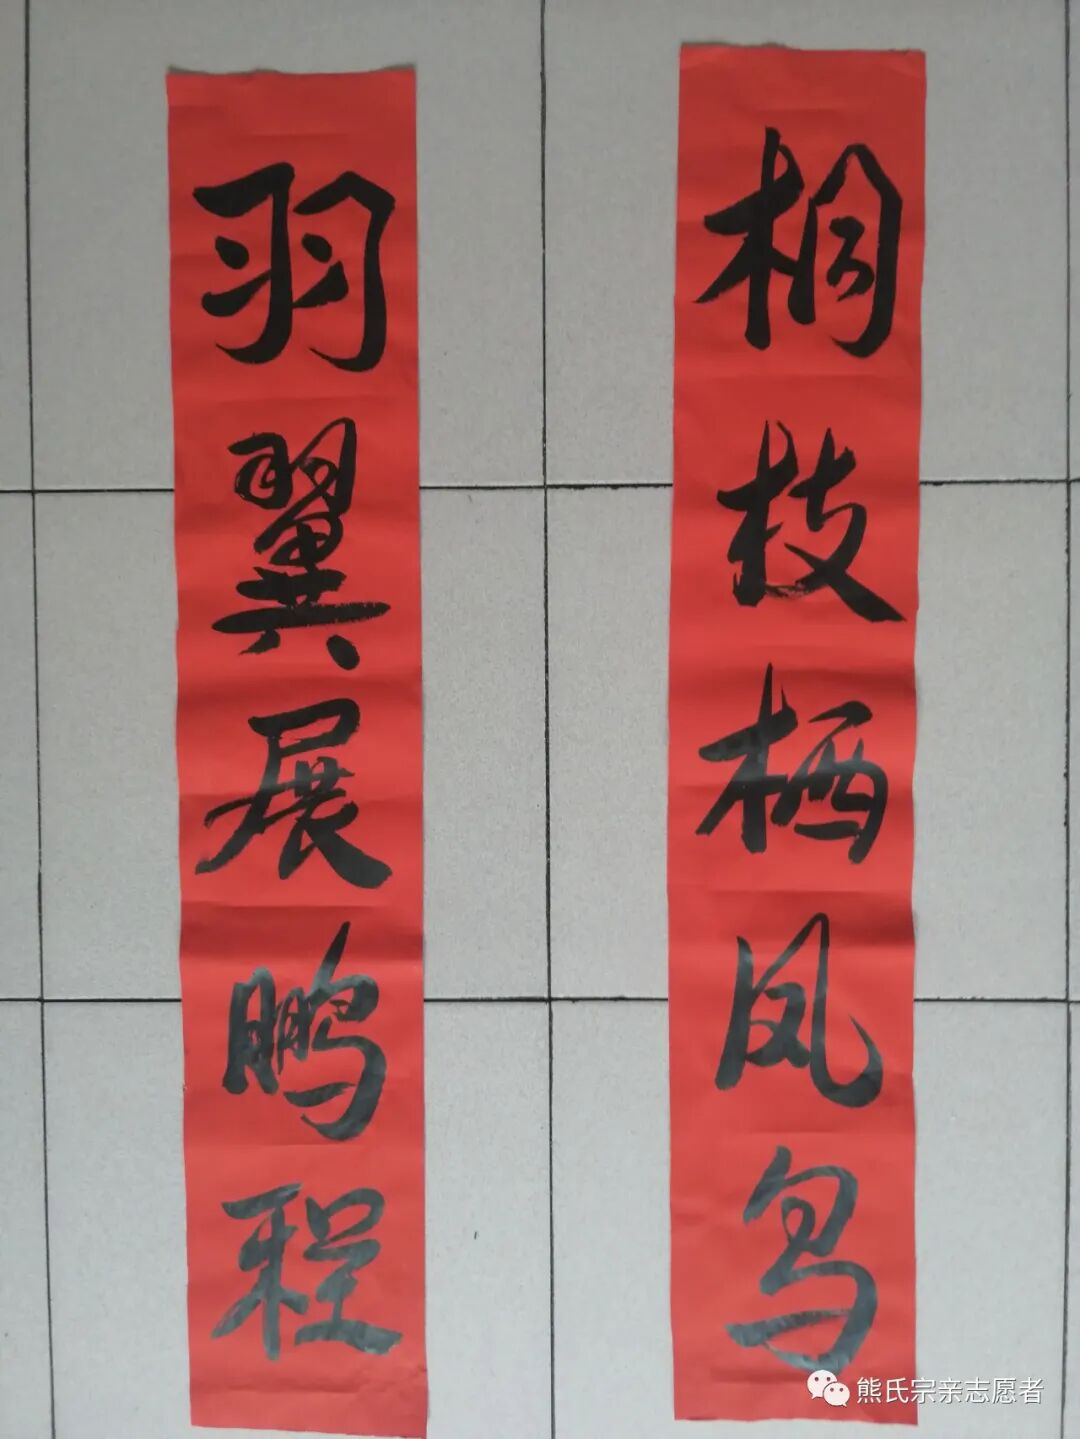 桐枝栖凤鸟
羽翼展鹏程
熊氏宗亲志愿者